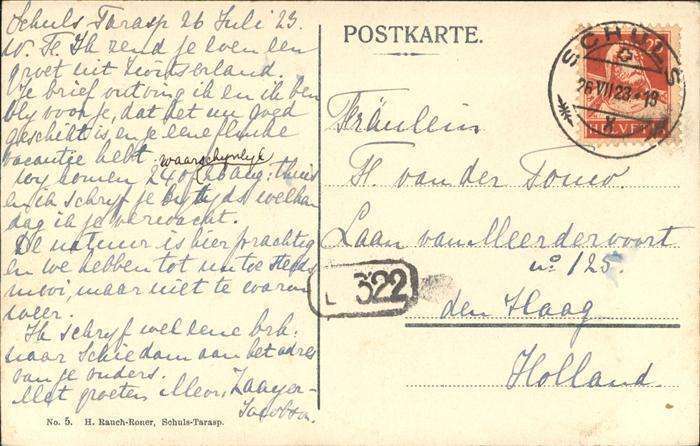 Schuls Tarasp 26 Juli 23.
W. Fe Ik zend je even een
groet uit Zwitserland.
Je brief ontving ik en ik ben
bly voor je, dat het nu goed
geschikt is, en je eene flinke
vacantje hebt.
waarschynlyk
Wy komen 24 of 26 Aug: thuis
en ik schryf je by tyds welken
dag ik je verwacht.
De natuur is hier prachtig
en we hebben tot nu toe steeds
mooi, maar niet te warm
weer.
Ik schryf wel eene brk:
naar Schiedam aan het adres
van je ouders.
Met groeten Mevr. Zaayer-
Jacobson.
No. 5. H. Rauch-Roner, Schuls-Tarasp.
POSTKARTE.
SCHULS
26 VII 23-13
HELVETIA
Fräulein
H. van der Touw.
Laan van Meerdervoort
no 125.
L 322
den Haag
Holland.